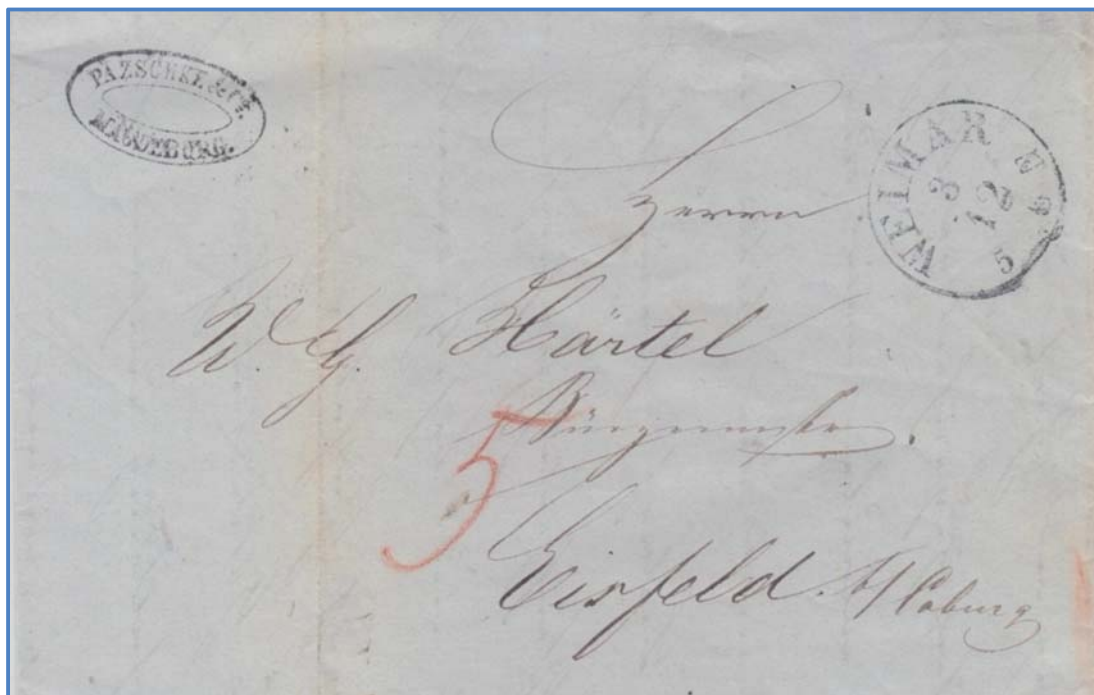 PAZSCHKE & Co.
MAGDEBURG.
WEIMAR
3
12
5
Herrn
W. G. Härtel
Bürgermeister.
5
Eisfeld b/Coburg